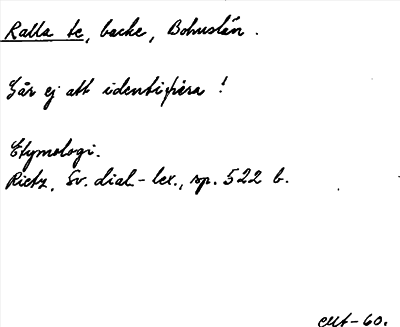 Ralla te, backe, Bohuslän.
Går ej att identifiera!
Etymologi.
Rietz, Sv. dial-lex., sp. 522 b.
-60.